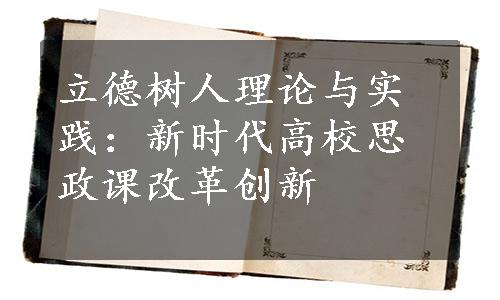 立德树人理论与实
践：新时代高校思
政课改革创新